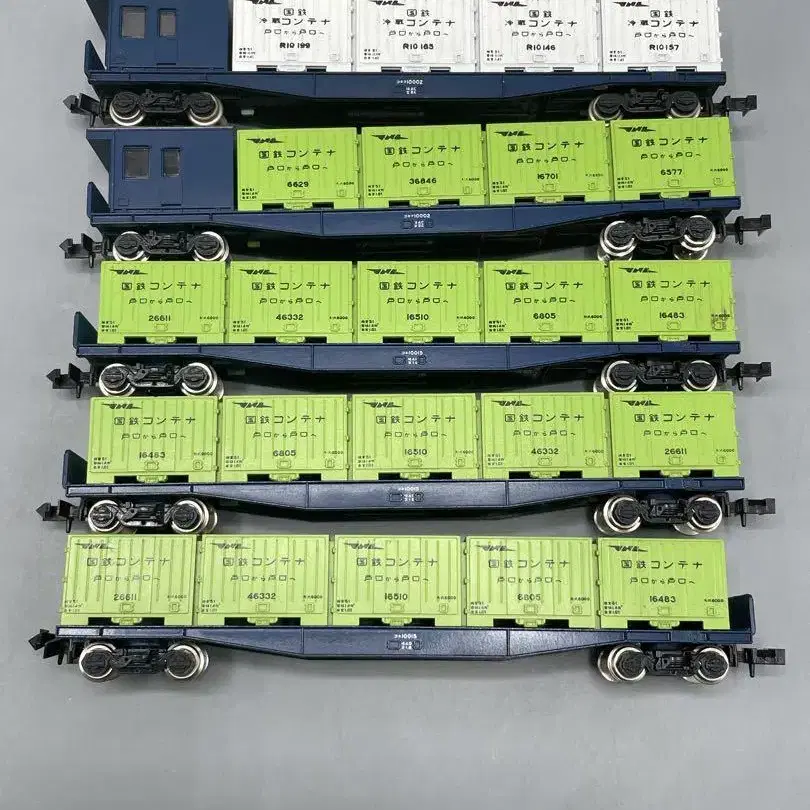 国鉄 国鉄 国鉄 国鉄
冷蔵コンテナ 冷蔵コンテナ 冷蔵コンテナ 冷蔵コンテナ
戸口から戸口へ 戸口から戸口へ 戸口から戸口へ 戸口から戸口へ
R10199 R10165 R10146 R10157
コキフ10002
国鉄コンテナ 国鉄コンテナ 国鉄コンテナ 国鉄コンテナ
戸口から戸口へ 戸口から戸口へ 戸口から戸口へ 戸口から戸口へ
6629 36846 16701 6577
コキフ10002
国鉄コンテナ 国鉄コンテナ 国鉄コンテナ 国鉄コンテナ 国鉄コンテナ
戸口から戸口へ 戸口から戸口へ 戸口から戸口へ 戸口から戸口へ 戸口から戸口へ
26611 46332 16510 6805 16483
コキ10015
国鉄コンテナ 国鉄コンテナ 国鉄コンテナ 国鉄コンテナ 国鉄コンテナ
戸口から戸口へ 戸口から戸口へ 戸口から戸口へ 戸口から戸口へ 戸口から戸口へ
16483 6805 16510 46332 26611
コキ10015
国鉄コンテナ 国鉄コンテナ 国鉄コンテナ 国鉄コンテナ 国鉄コンテナ
戸口から戸口へ 戸口から戸口へ 戸口から戸口へ 戸口から戸口へ 戸口から戸口へ
26611 46332 16510 6805 16483
コキ10015